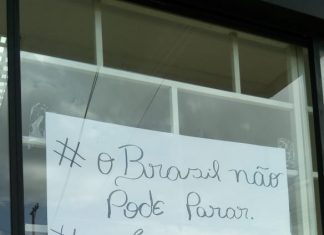 # o Brasil não
Pode Parar.
#